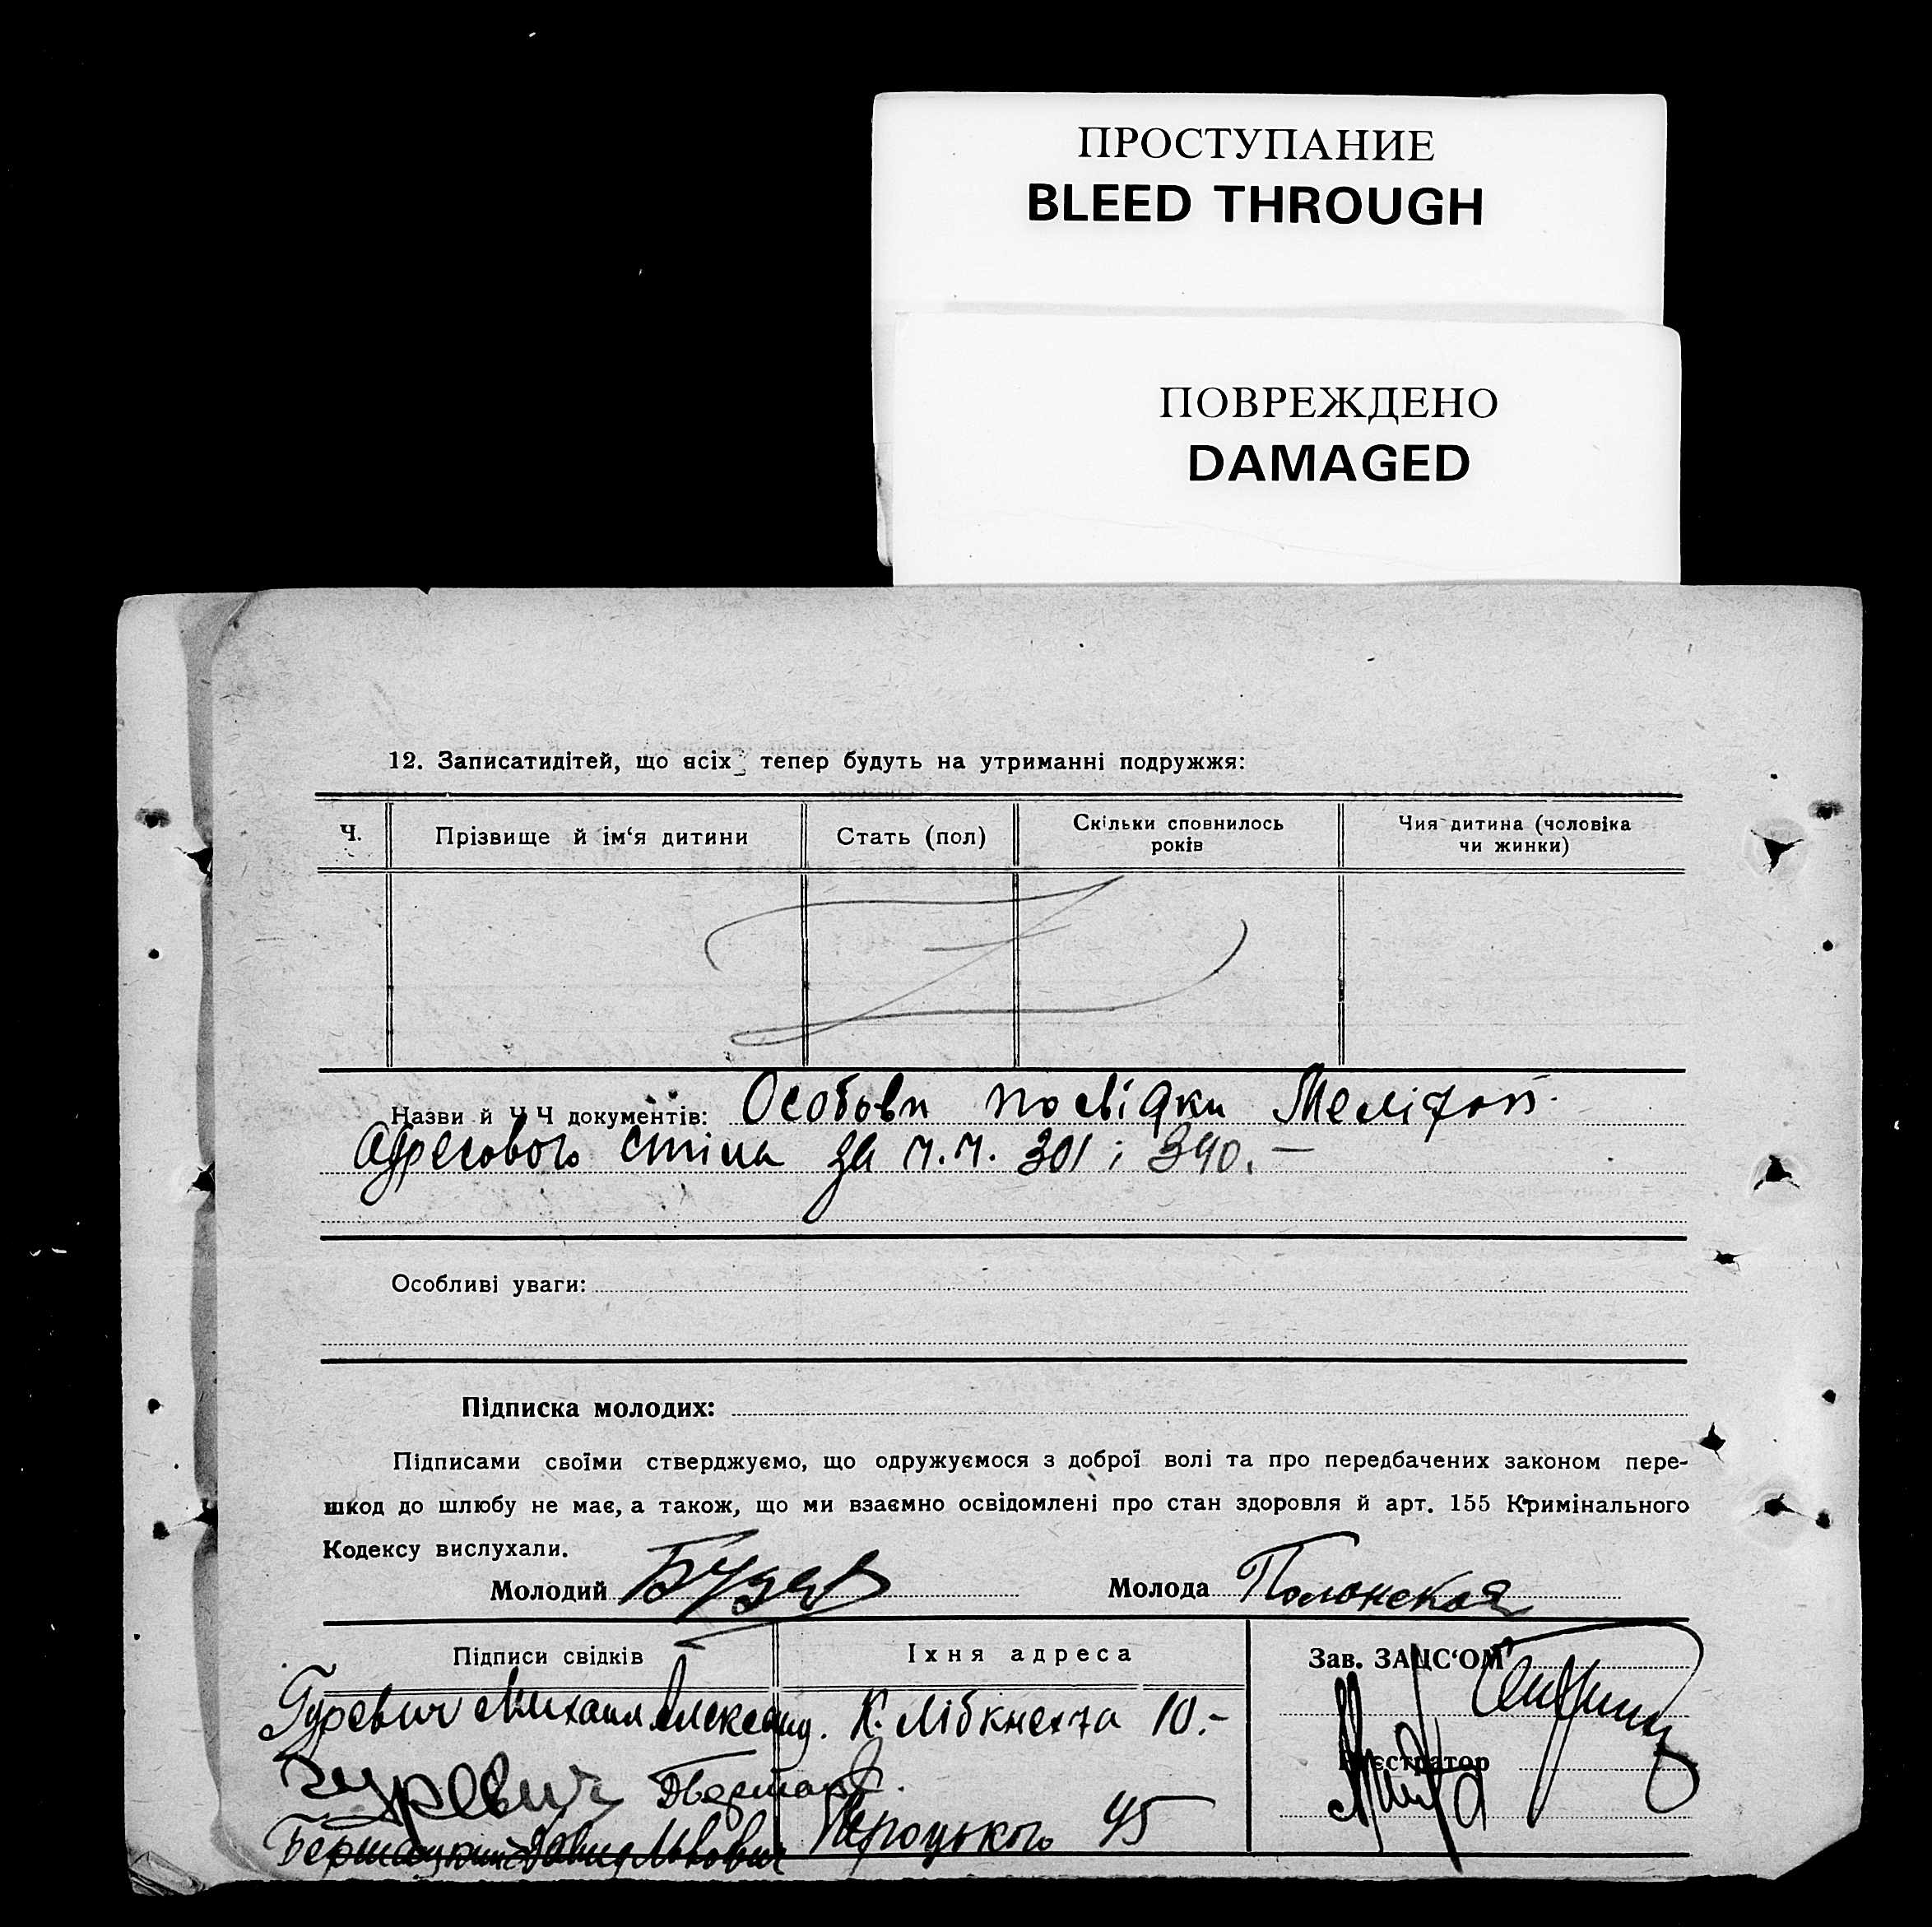 ПРОСТУПАНИЕ
BLEED THROUGH
ПОВРЕЖДЕНО
DAMAGED
12. Записатидітей, що всіх тепер будуть на утриманні подружжя:
Ч.
Прізвище й ім‘я дитини
Стать (пол)
Скільки сповнилось
років
Чия дитина (чоловіка
чи жинки)
Назви й Ч Ч документів: Особови посвідки Мелітоп.
Адресового стіла за ч.ч. 301 і 390. —
Особливі уваги:
Підписка молодих:
Підписами своїми стверджуємо, що одружуємося з доброї волі та про передбачених законом пере-
шкод до шлюбу не має, а також, що ми взаємно освідомлені про стан здоровля й арт. 155 Кримінального
Кодексу вислухали.
Молодий
Молода Полонская
Підписи свідків
Їхня адреса
Зав. ЗАЦС‘ОМ
Гуревич Михаил К. Лібкнехта 10.-
Гуревич
Реєстратор
Львович 45